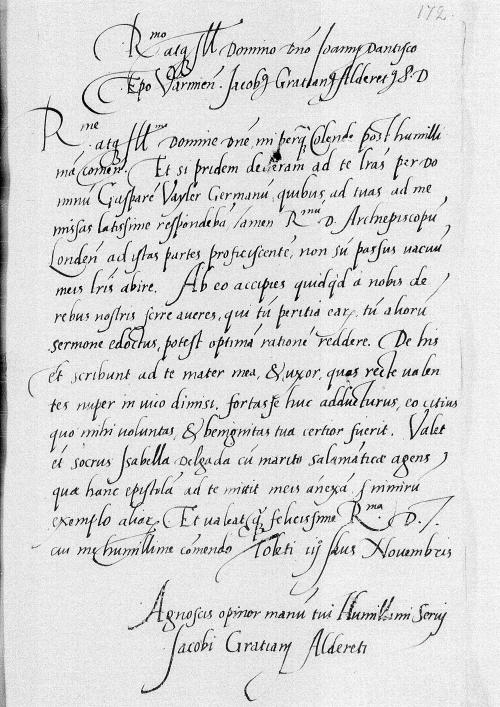 172.
Rmo atq Ill Domino Dno Joanni Dantisco
Epo Varmien. Jacobus Gratianus Alderetus S. D
Rme atq Illme Domine Dne, mi perq Colende post humilli
mā comen. Et si pridem dederam ad te lras per Do
minū Gasparē Vayler Germanū, quibus ad tuas ad me
missas latissime respondebā, tamen Rmū D. Archiepiscopū
Londen ad istas partes proficiscentē, non sū passus vacuū
meis lris abire. Ab eo accipies quidqd a nobis de
rebus nostris scire averes, qui tū peritia earz, tū alioru
sermone edoctus, potest optimā rationē reddere. De his
et scribunt ad te mater mea, & uxor, quas recte valen
tes nuper in vico dimisi, fortasse huc adducturus, eo citius
quo mihi voluntas, & benignitas tua certior fuerit. Valet
et socrus Isabella Delgada cū marito salamāticæ agens,
quæ hanc epistolā ad te mittit meis anexā, nimirū
exemplo aliarz. Et valeat q felicissime Rma D. T.
cui me humillime comendo Toleti iij Idus Novembris
Agnoscis opinor manū tui Humillimi Servi
Jacobi Gratiani Aldereti